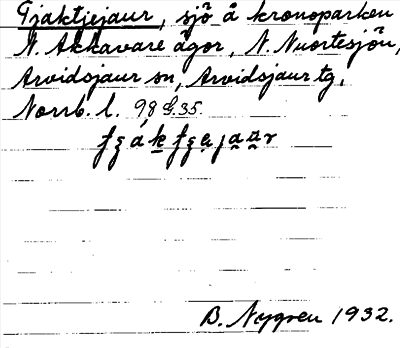 Tjaktjejaur, sjö å kronoparken
N. Akkavare ägor, N. Nuortesjön,
Arvidsjaur sn, Arvidsjaur tg,
Norrb. l. 98 G.35.
B. Nygren 1932.